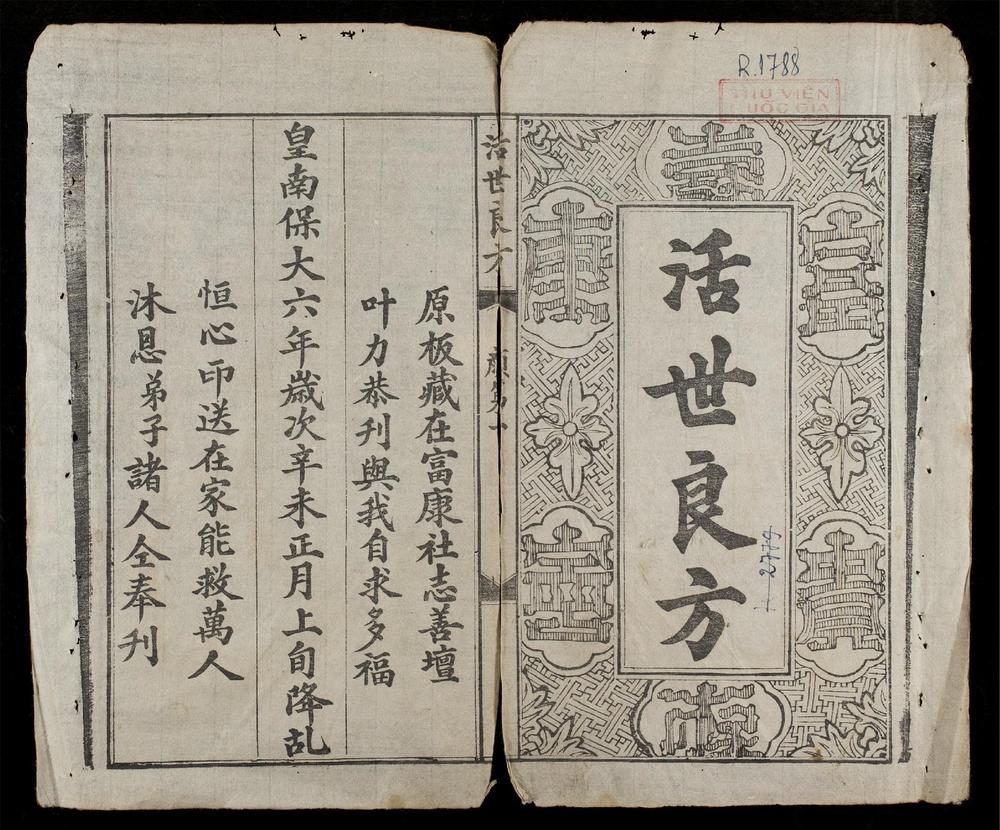 R.1788
THƯ VIỆN
QUỐC GIA
活世良方
2779
活世良方
原板藏在富康社志善壇
叶力恭刊與我自求多福
皇南保大六年歲次辛未正月上旬降乩
恒心印送在家能救萬人
沐恩弟子諸人仝奉刊